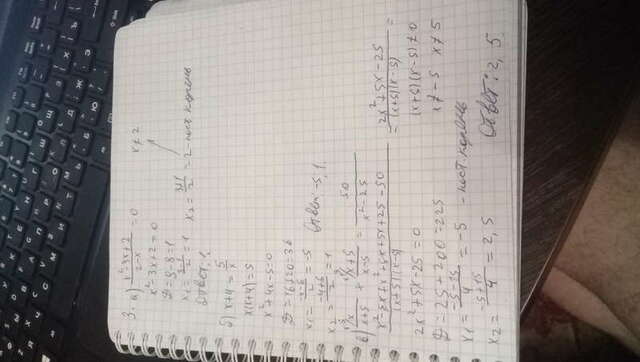 3. а) (x²-3x+2)/(2-x) = 0    x ≠ 2
x²-3x+2=0
D=9-8=1
x₁=(3-1)/2=1    x₂=(3+1)/2=2-пост. корень
Ответ: 1.
б) x+4=5/x
x(x+4)=5
x²+4x-5=0
D=16+20=36
x₁=(-4-6)/2=-5
x₂=(-4+6)/2=1    Ответ: -5; 1.
в) x/(x+5) + (x+5)/(x-5) = 50/(x²-25)
(x²-5x+x²+5x+5x+25-50)/((x+5)(x-5)) = (2x²+5x-25)/((x+5)(x-5)) =
2x²+5x-25=0    (x+5)(x-5)≠0
D=25+200=225    x≠-5  x≠5
x₁=(-5-15)/4=-5 -пост. корень
x₂=(-5+15)/4=2,5    Ответ: 2,5.